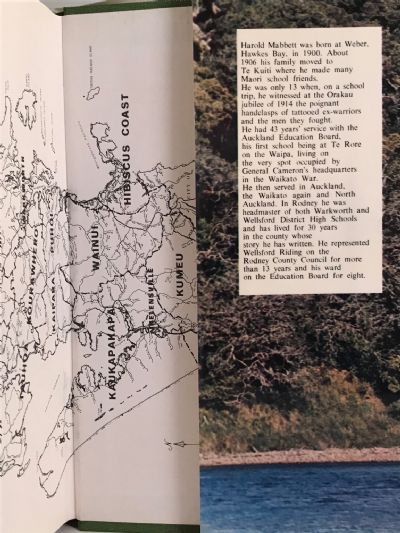 Harold Mabbett was born at Weber,
Hawkes Bay, in 1900. About
1906 his family moved to
Te Kuiti where he made many
Maori school friends.
He was only 13 when, on a school
trip, he witnessed at the Orakau
jubilee of 1914 the poignant
handclasps of tattooed ex-warriors
and the men they fought.
He had 43 years' service with the
Auckland Education Board,
his first school being at Te Rore
on the Waipa, living on
the very spot occupied by
General Cameron's headquarters
in the Waikato War.
He then served in Auckland,
the Waikato again and North
Auckland. In Rodney he was
headmaster of both Warkworth and
Wellsford District High Schools
and has lived for 30 years
in the county whose
story he has written. He represented
Wellsford Riding on the
Rodney County Council for more
than 13 years and his ward
on the Education Board for eight.
HIBISCUS COAST
WAINUI
KAUKAPAKAPA
HELENSVILLE
KUMEU